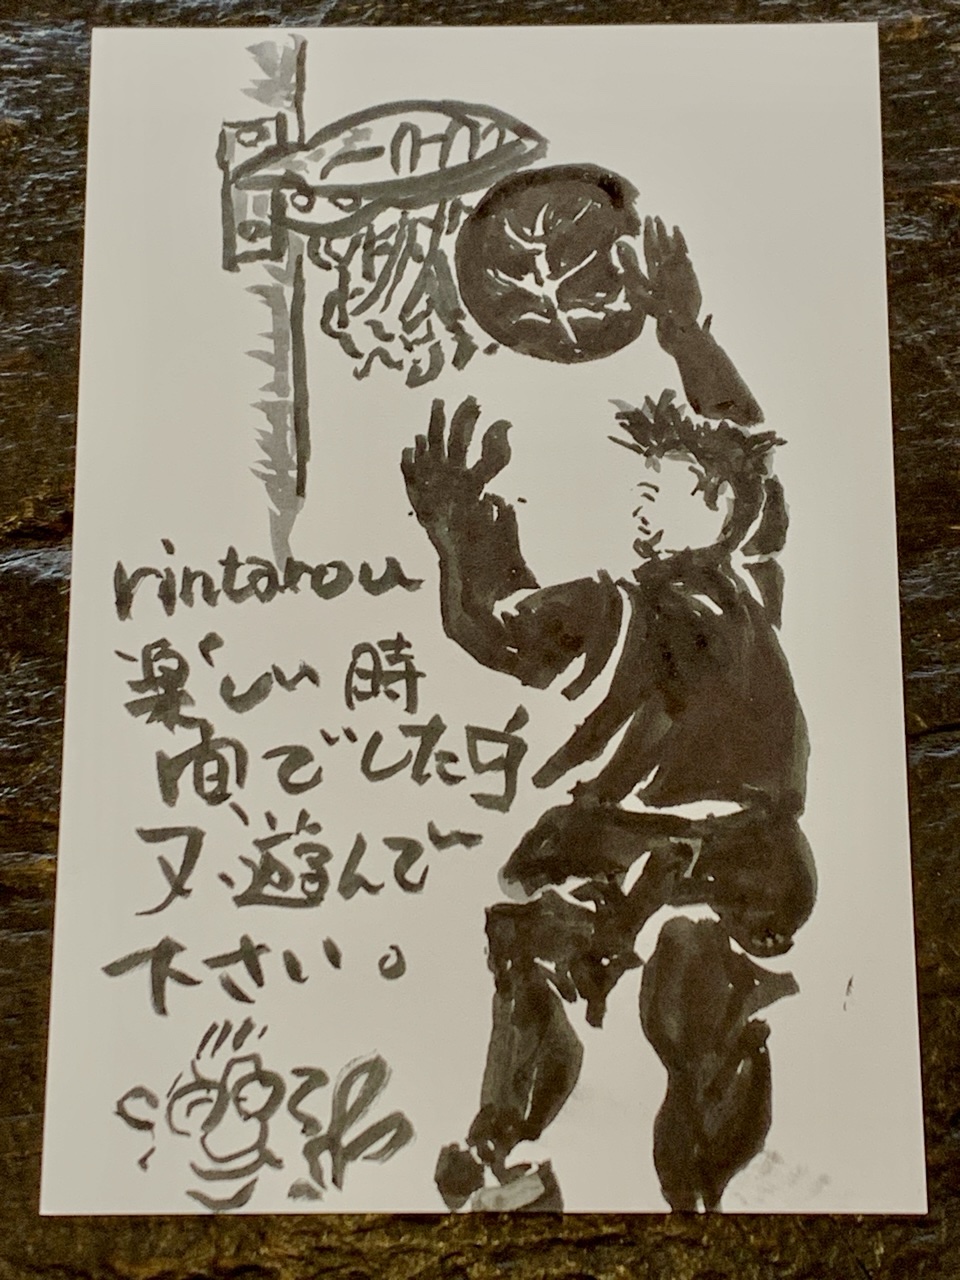 rintarou
楽しい時
間でした
又、遊んで
下さい。